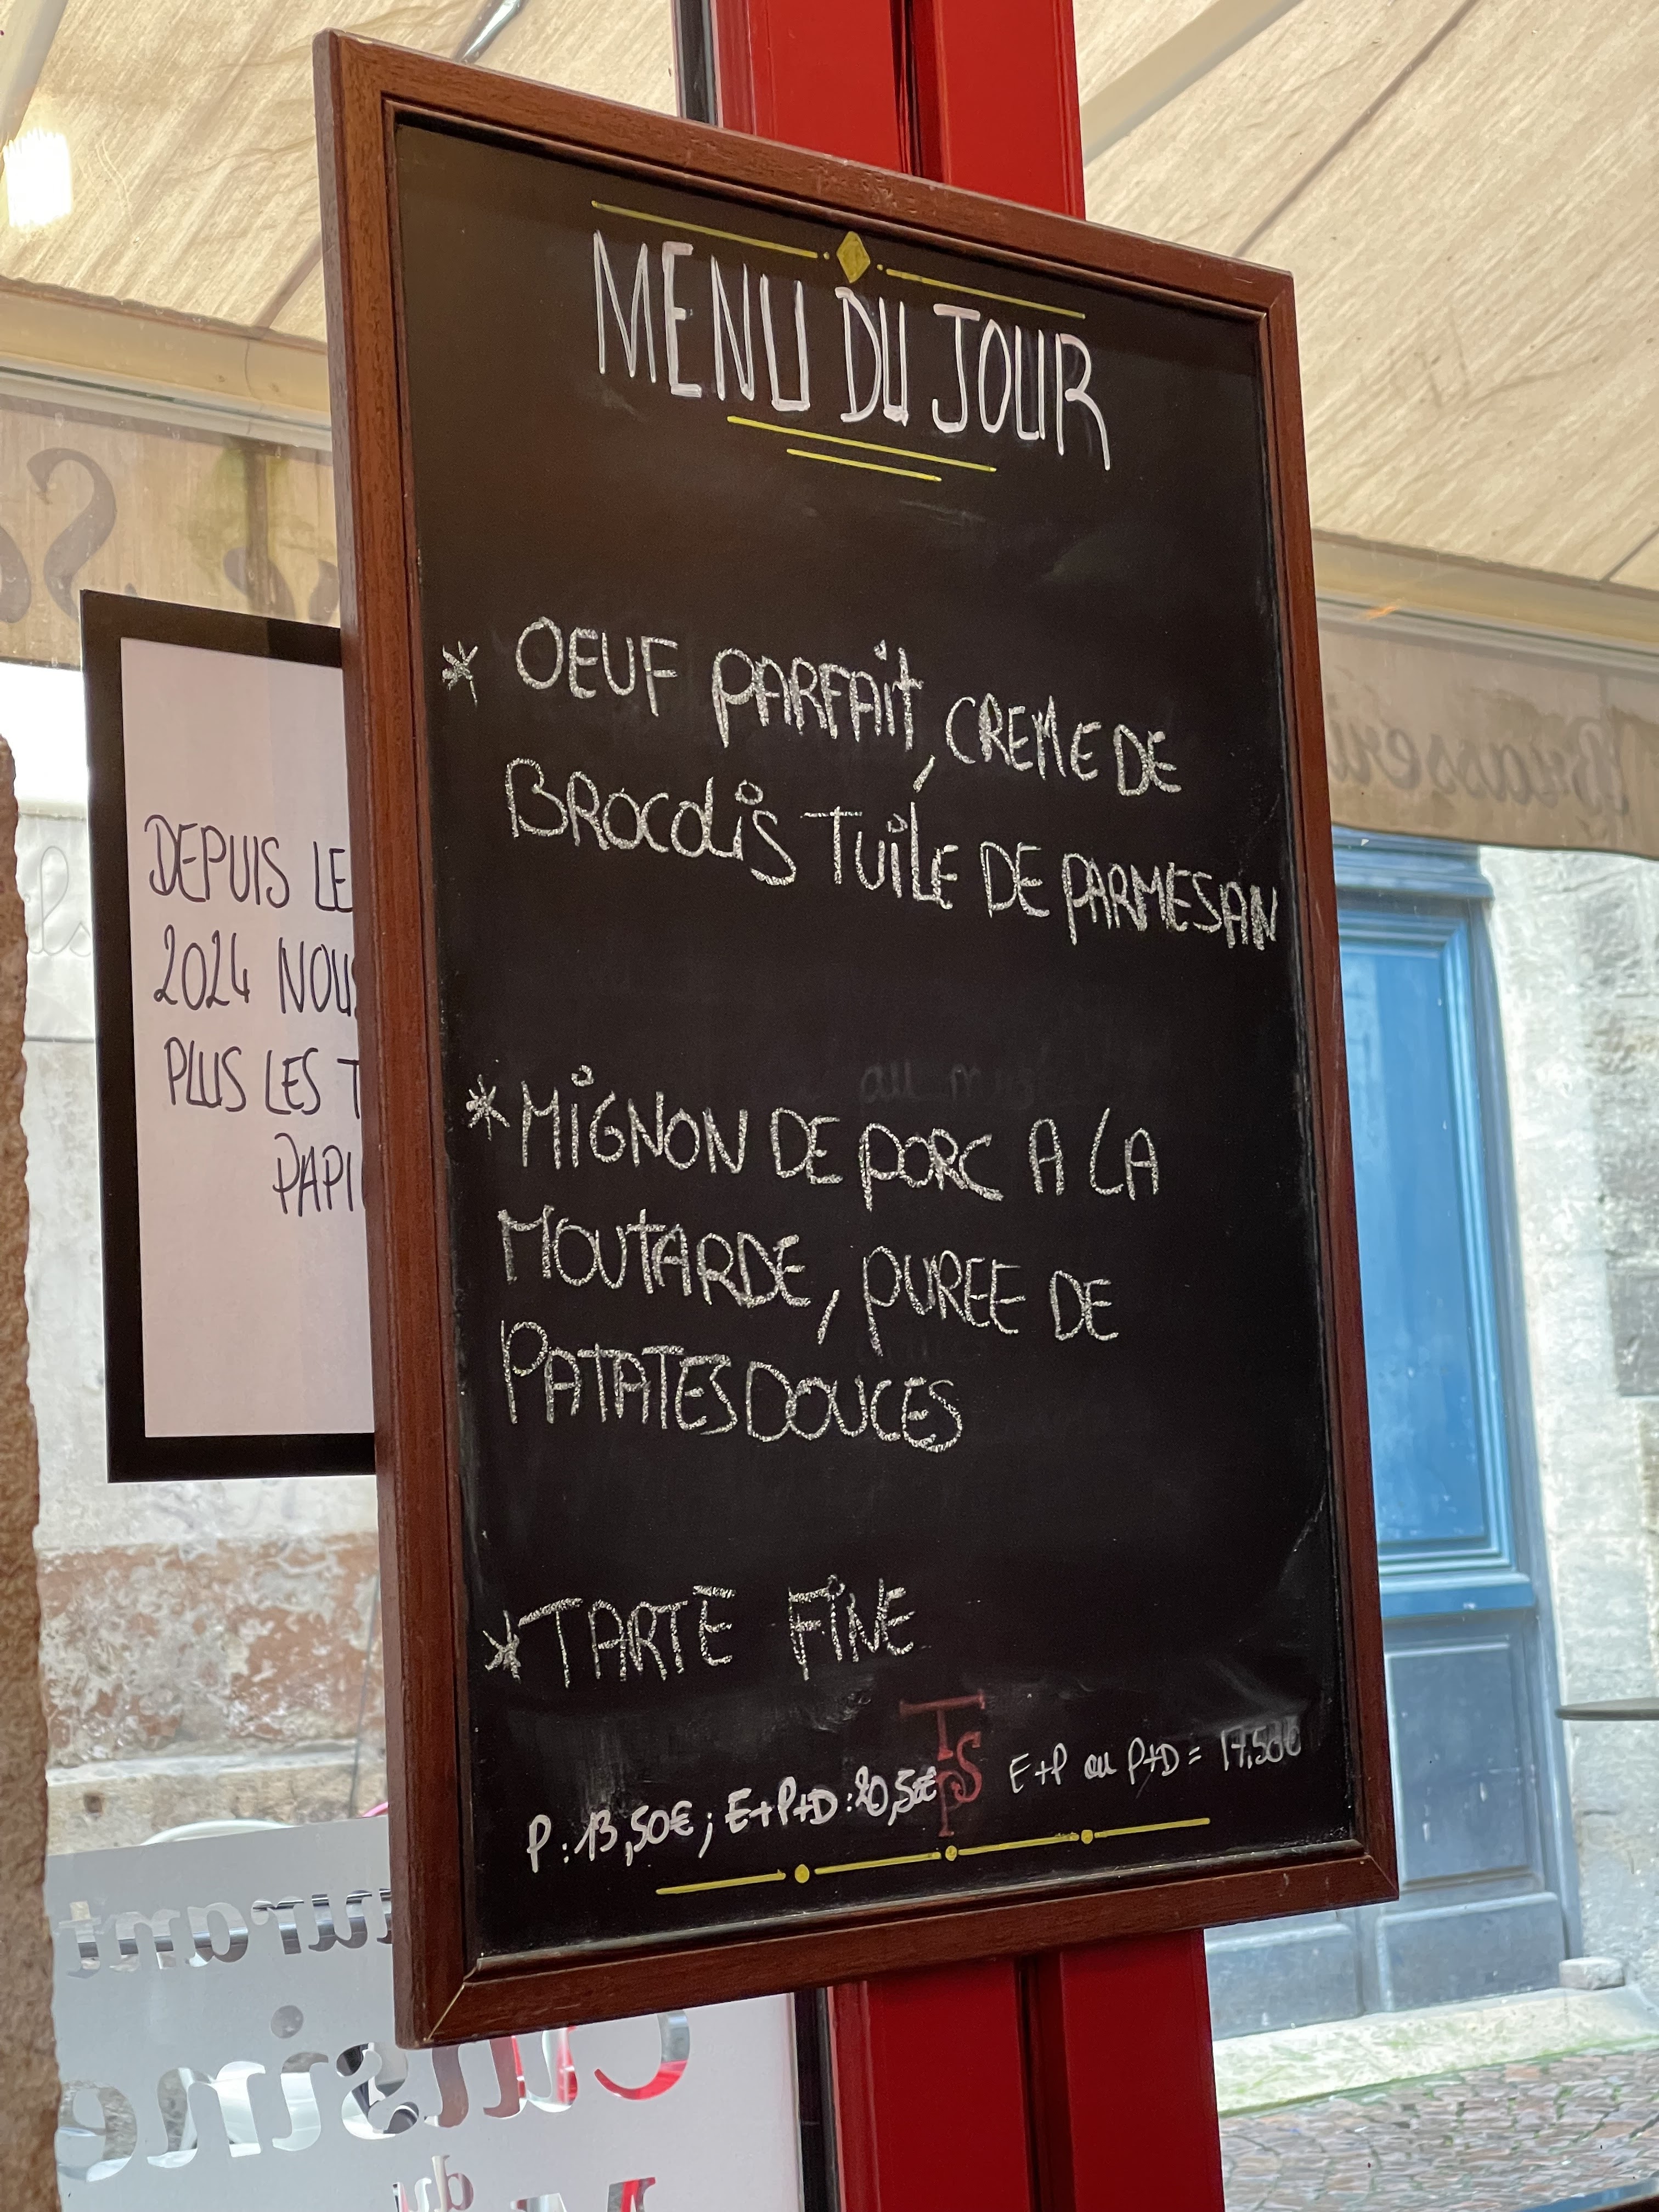 MENU DU JOUR
* OEUF PARFAIT, CREME DE
BROCOLIS TUILE DE PARMESAN
* MIGNON DE PORC A LA
MOUTARDE, PUREE DE
PATATES DOUCES
* TARTE FINE
TSP
P : 13,50€ ; E+P+D : 20,5€
E+P ou P+D = 17,50€
DEPUIS LE
2024 NOUS
PLUS LES T
PAPI
Brasserie
urant
Cuisine
du